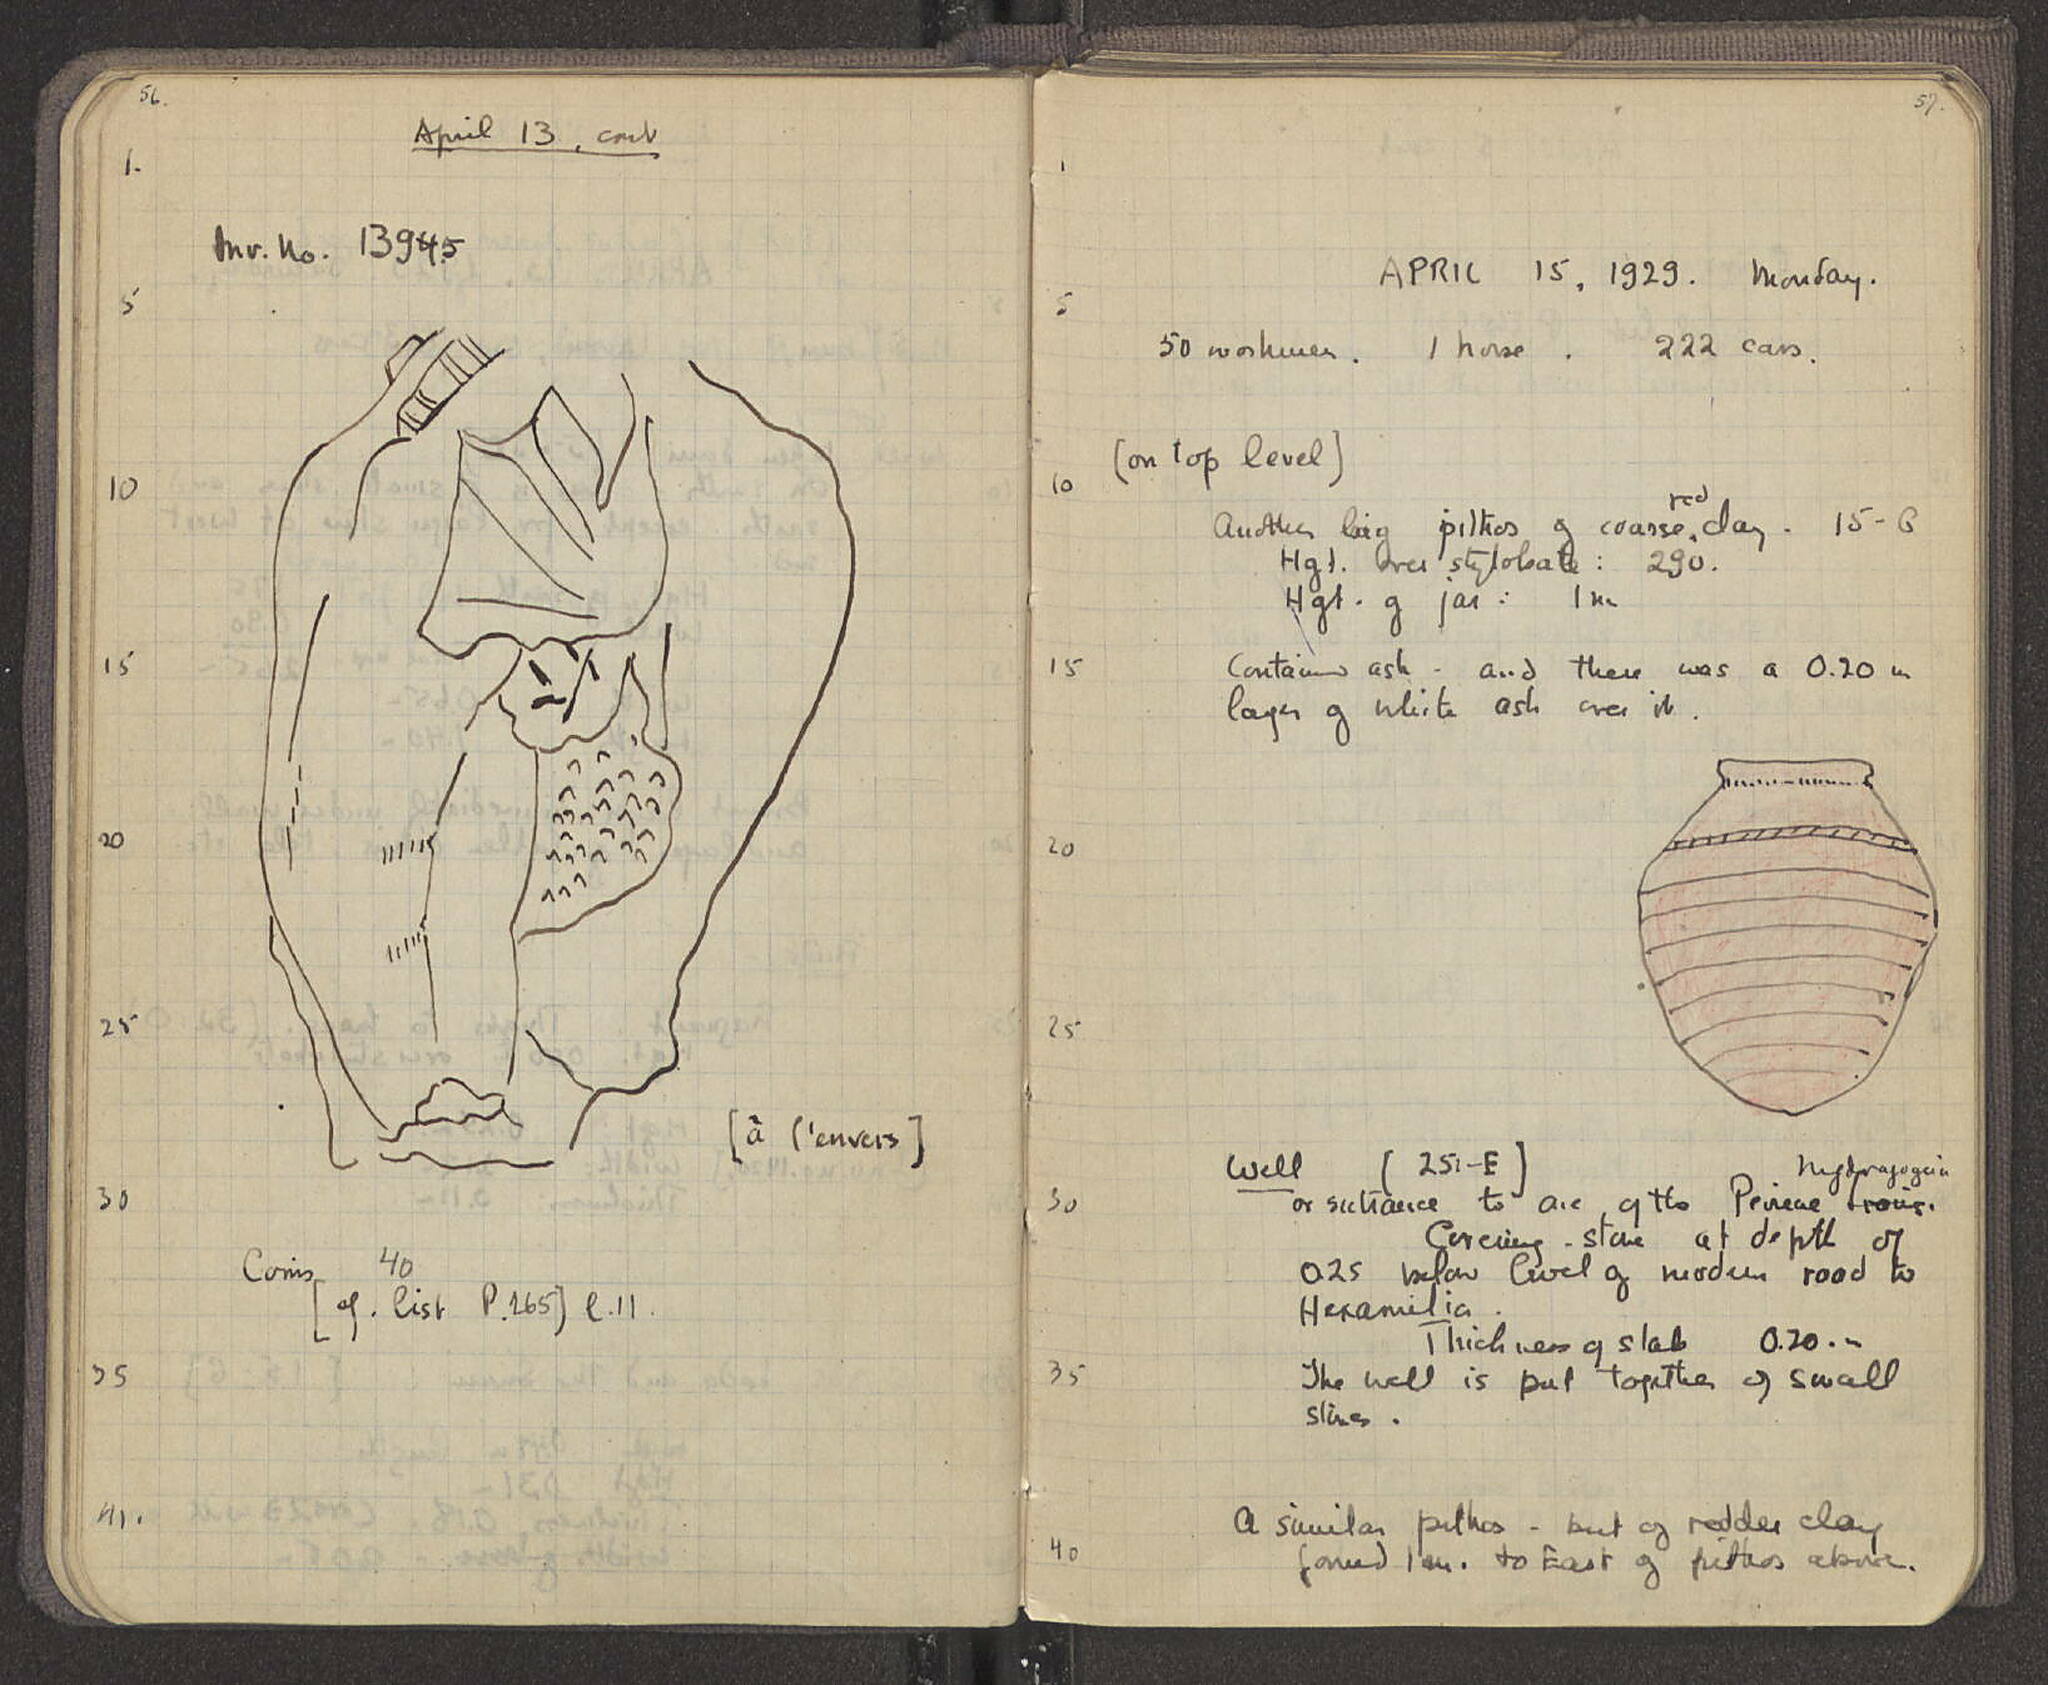 56.
April 13, cont
1.
Inv. No. 13945
5
10
15
20
25
[à l'envers]
30
Coins 40
[cf. list P. 265] l. 11.
35
41.
57.
1
APRIL 15, 1929. Monday.
5
50 workmen. 1 horse. 222 cars.
[on top level]
10
red
Another big pithos of coarse clay. 15-G
Hgt. over stylobate: 290.
Hgt. of jar: 1 m
15
Contained ash - and there was a 0.20 m
layer of white ash over it.
20
25
Well [25-E]
30
or entrance to one of the Peirene
Covering-stone at depth of
0.25 below level of modern road to
Hexamilia.
Thickness of slab 0.20 m
35
The well is put together of small
stones.
A similar pithos - but of redder clay
40
found 1 m. to East of pithos above.